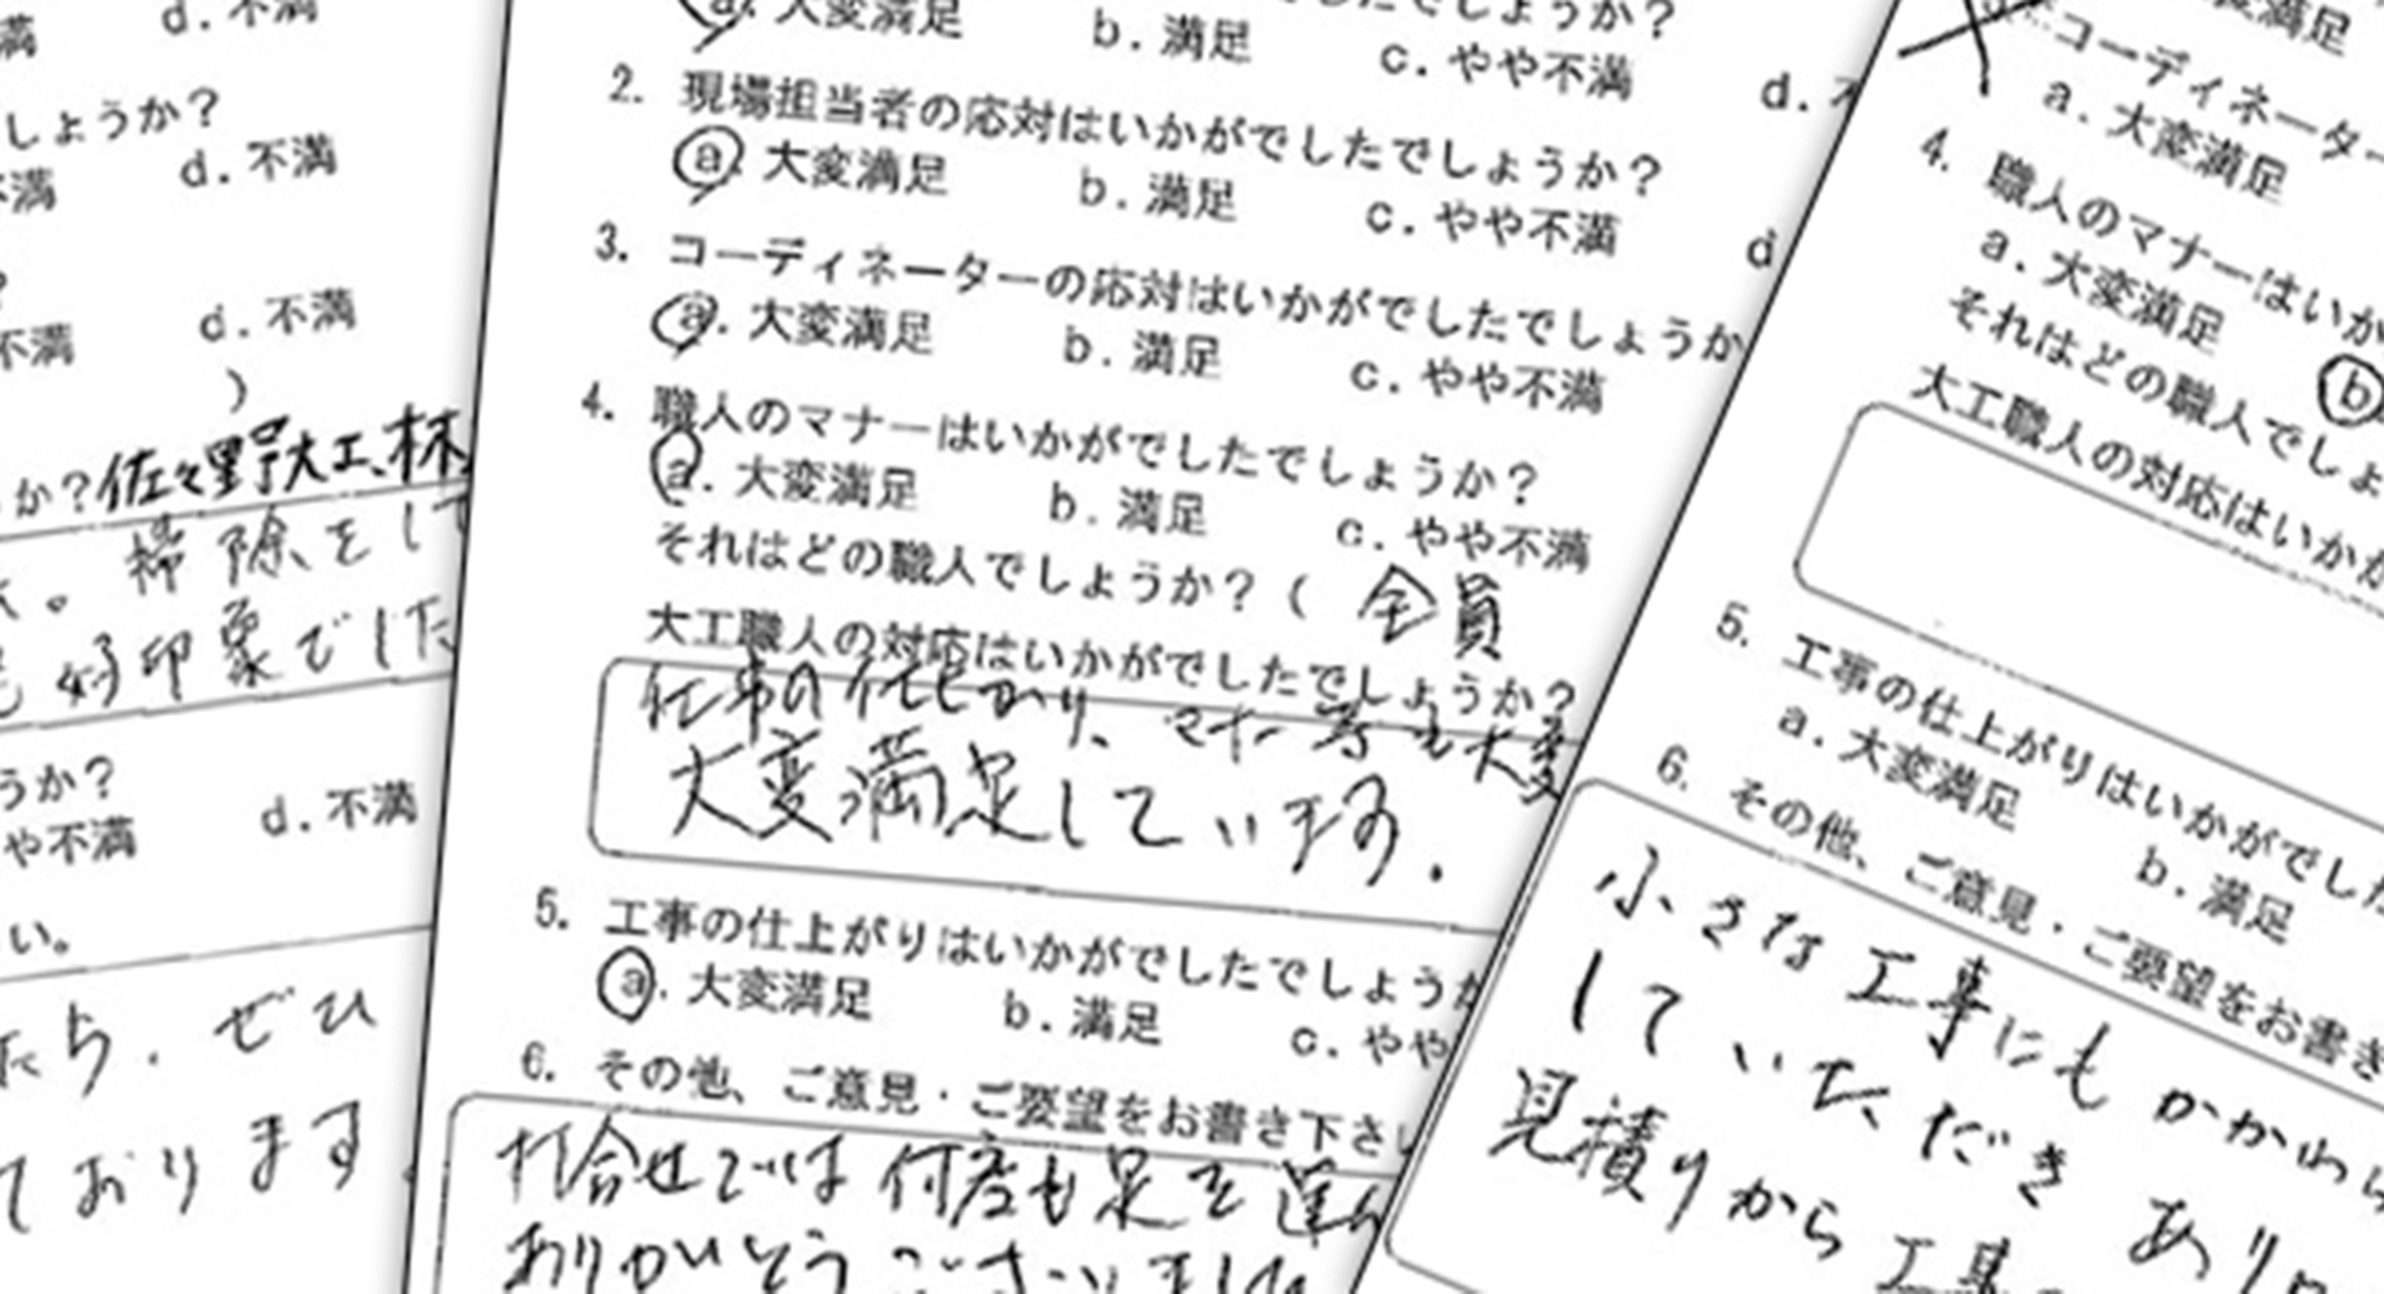 満 d.不満
しょうか?
不満 d.不満
?
不満 d.不満
)
か?佐々野大工、林
。掃除をして
好印象でした
うか?
や不満 d.不満
い。
たら、ぜひ
ております。
a.大変満足 b.満足 c.やや不満 d.不
でしたでしょうか?
2. 現場担当者の応対はいかがでしたでしょうか?
a.大変満足 b.満足 c.やや不満 d
3. コーディネーターの応対はいかがでしたでしょうか
a.大変満足 b.満足 c.やや不満
4. 職人のマナーはいかがでしたでしょうか?
a.大変満足 b.満足 c.やや不満
それはどの職人でしょうか?( 全員
大工職人の対応はいかがでしたでしょうか?
仕事の仕上がり、マナー等も大変
大変満足しています.
5. 工事の仕上がりはいかがでしたでしょうか
a.大変満足 b.満足 c.やや
6. その他、ご意見・ご要望をお書き下さい
打合せでは何度も足を運ん
ありがとうございました
変満足
コーディネーター
a.大変満足
4. 職人のマナーはいか
a.大変満足 b
それはどの職人でしょ
大工職人の対応はいかが
5. 工事の仕上がりはいかがでした
a.大変満足 b.満足
6. その他、ご意見・ご要望をお書き
小さな工事にもかかわら
していただき あり
見積りから工事